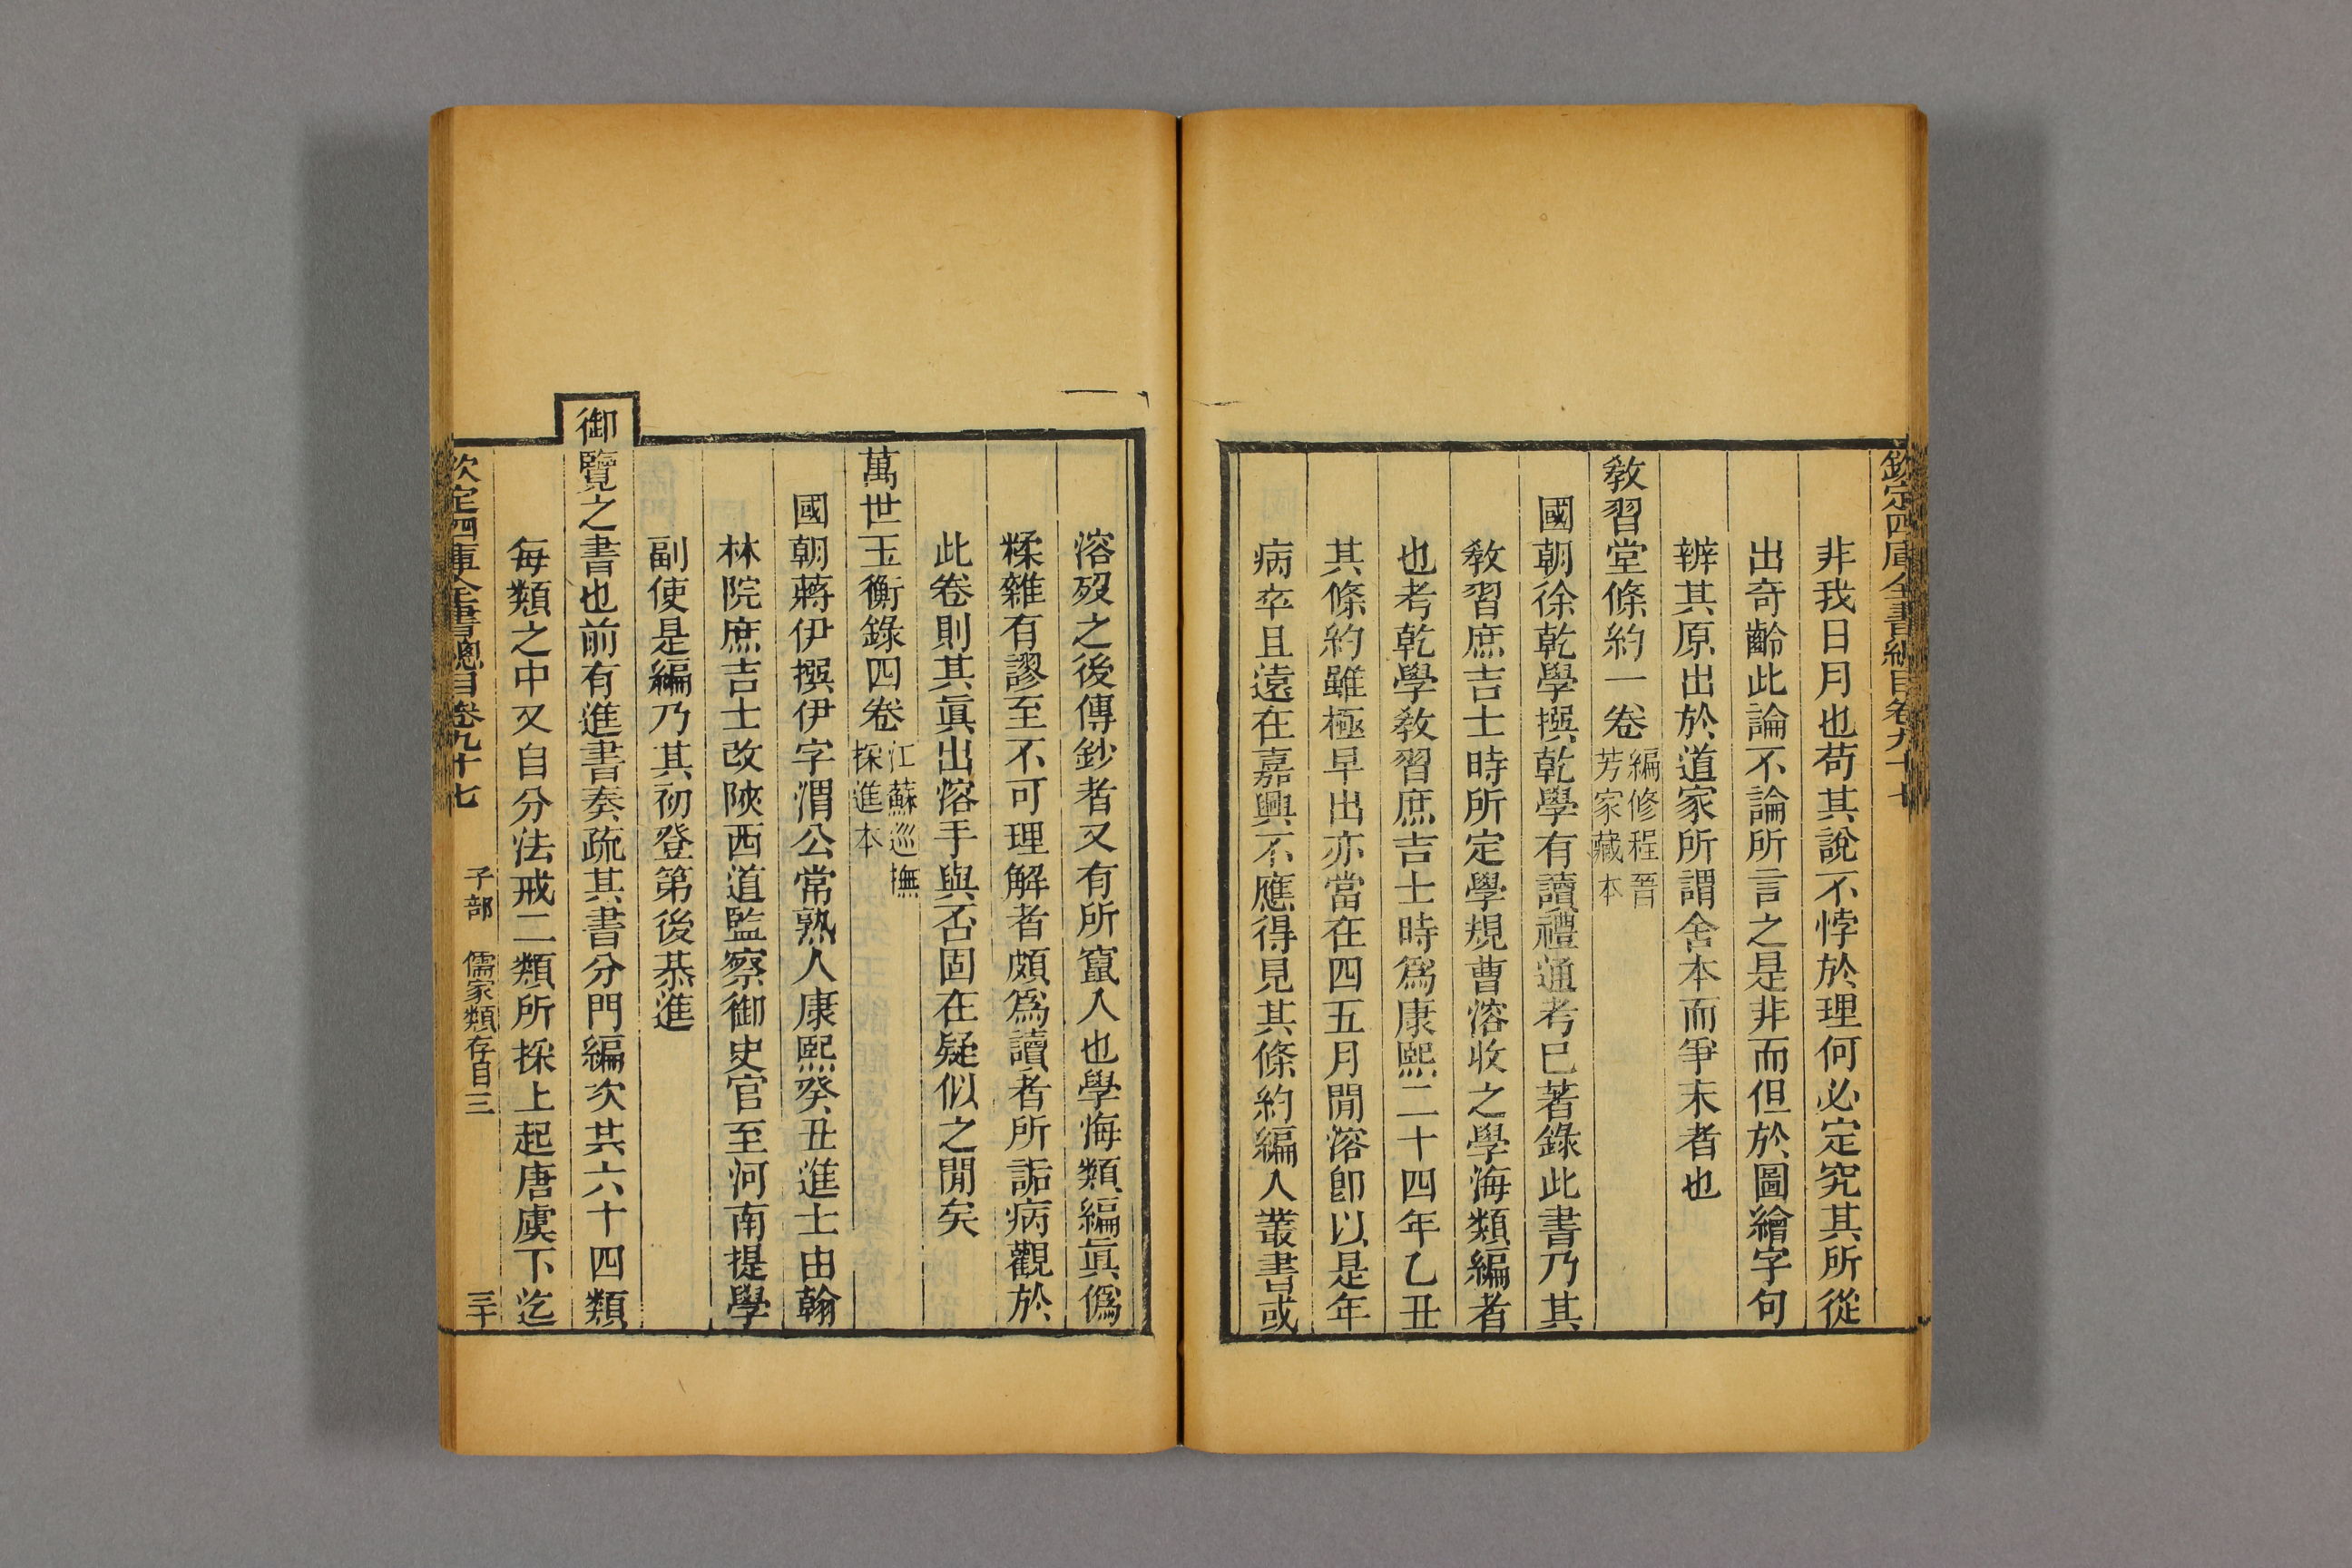 欽定四庫全書總目卷九十七
非我日月也苟其說不悖於理何必定究其所從
出奇齡此論不論所言之是非而但於圖繪字句
辨其原出於道家所謂舍本而爭末者也
敎習堂條約一卷編修程晉芳家藏本
國朝徐乾學撰乾學有讀禮通考已著錄此書乃其
敎習庶吉士時所定學規曹溶收之學海類編者
也考乾學敎習庶吉士時爲康熙二十四年乙丑
其條約雖極早出亦當在四五月閒溶卽以是年
病卒且遠在嘉興不應得見其條約編入叢書或
溶歿之後傳鈔者又有所竄人也學海類編眞僞
糅雜有謬至不可理解者頗爲讀者所詬病觀於
此卷則其眞出溶手與否固在疑似之閒矣
萬世玉衡錄四卷江蘇巡撫採進本
國朝蔣伊撰伊字渭公常熟人康熙癸丑進士由翰
林院庶吉士改陝西道監察御史官至河南提學
副使是編乃其初登第後恭進
御覽之書也前有進書奏疏其書分門編次共六十四類
每類之中又自分法戒二類所採上起唐虞下迄
欽定四庫全書總目卷九十七 子部 儒家類存目三 三十